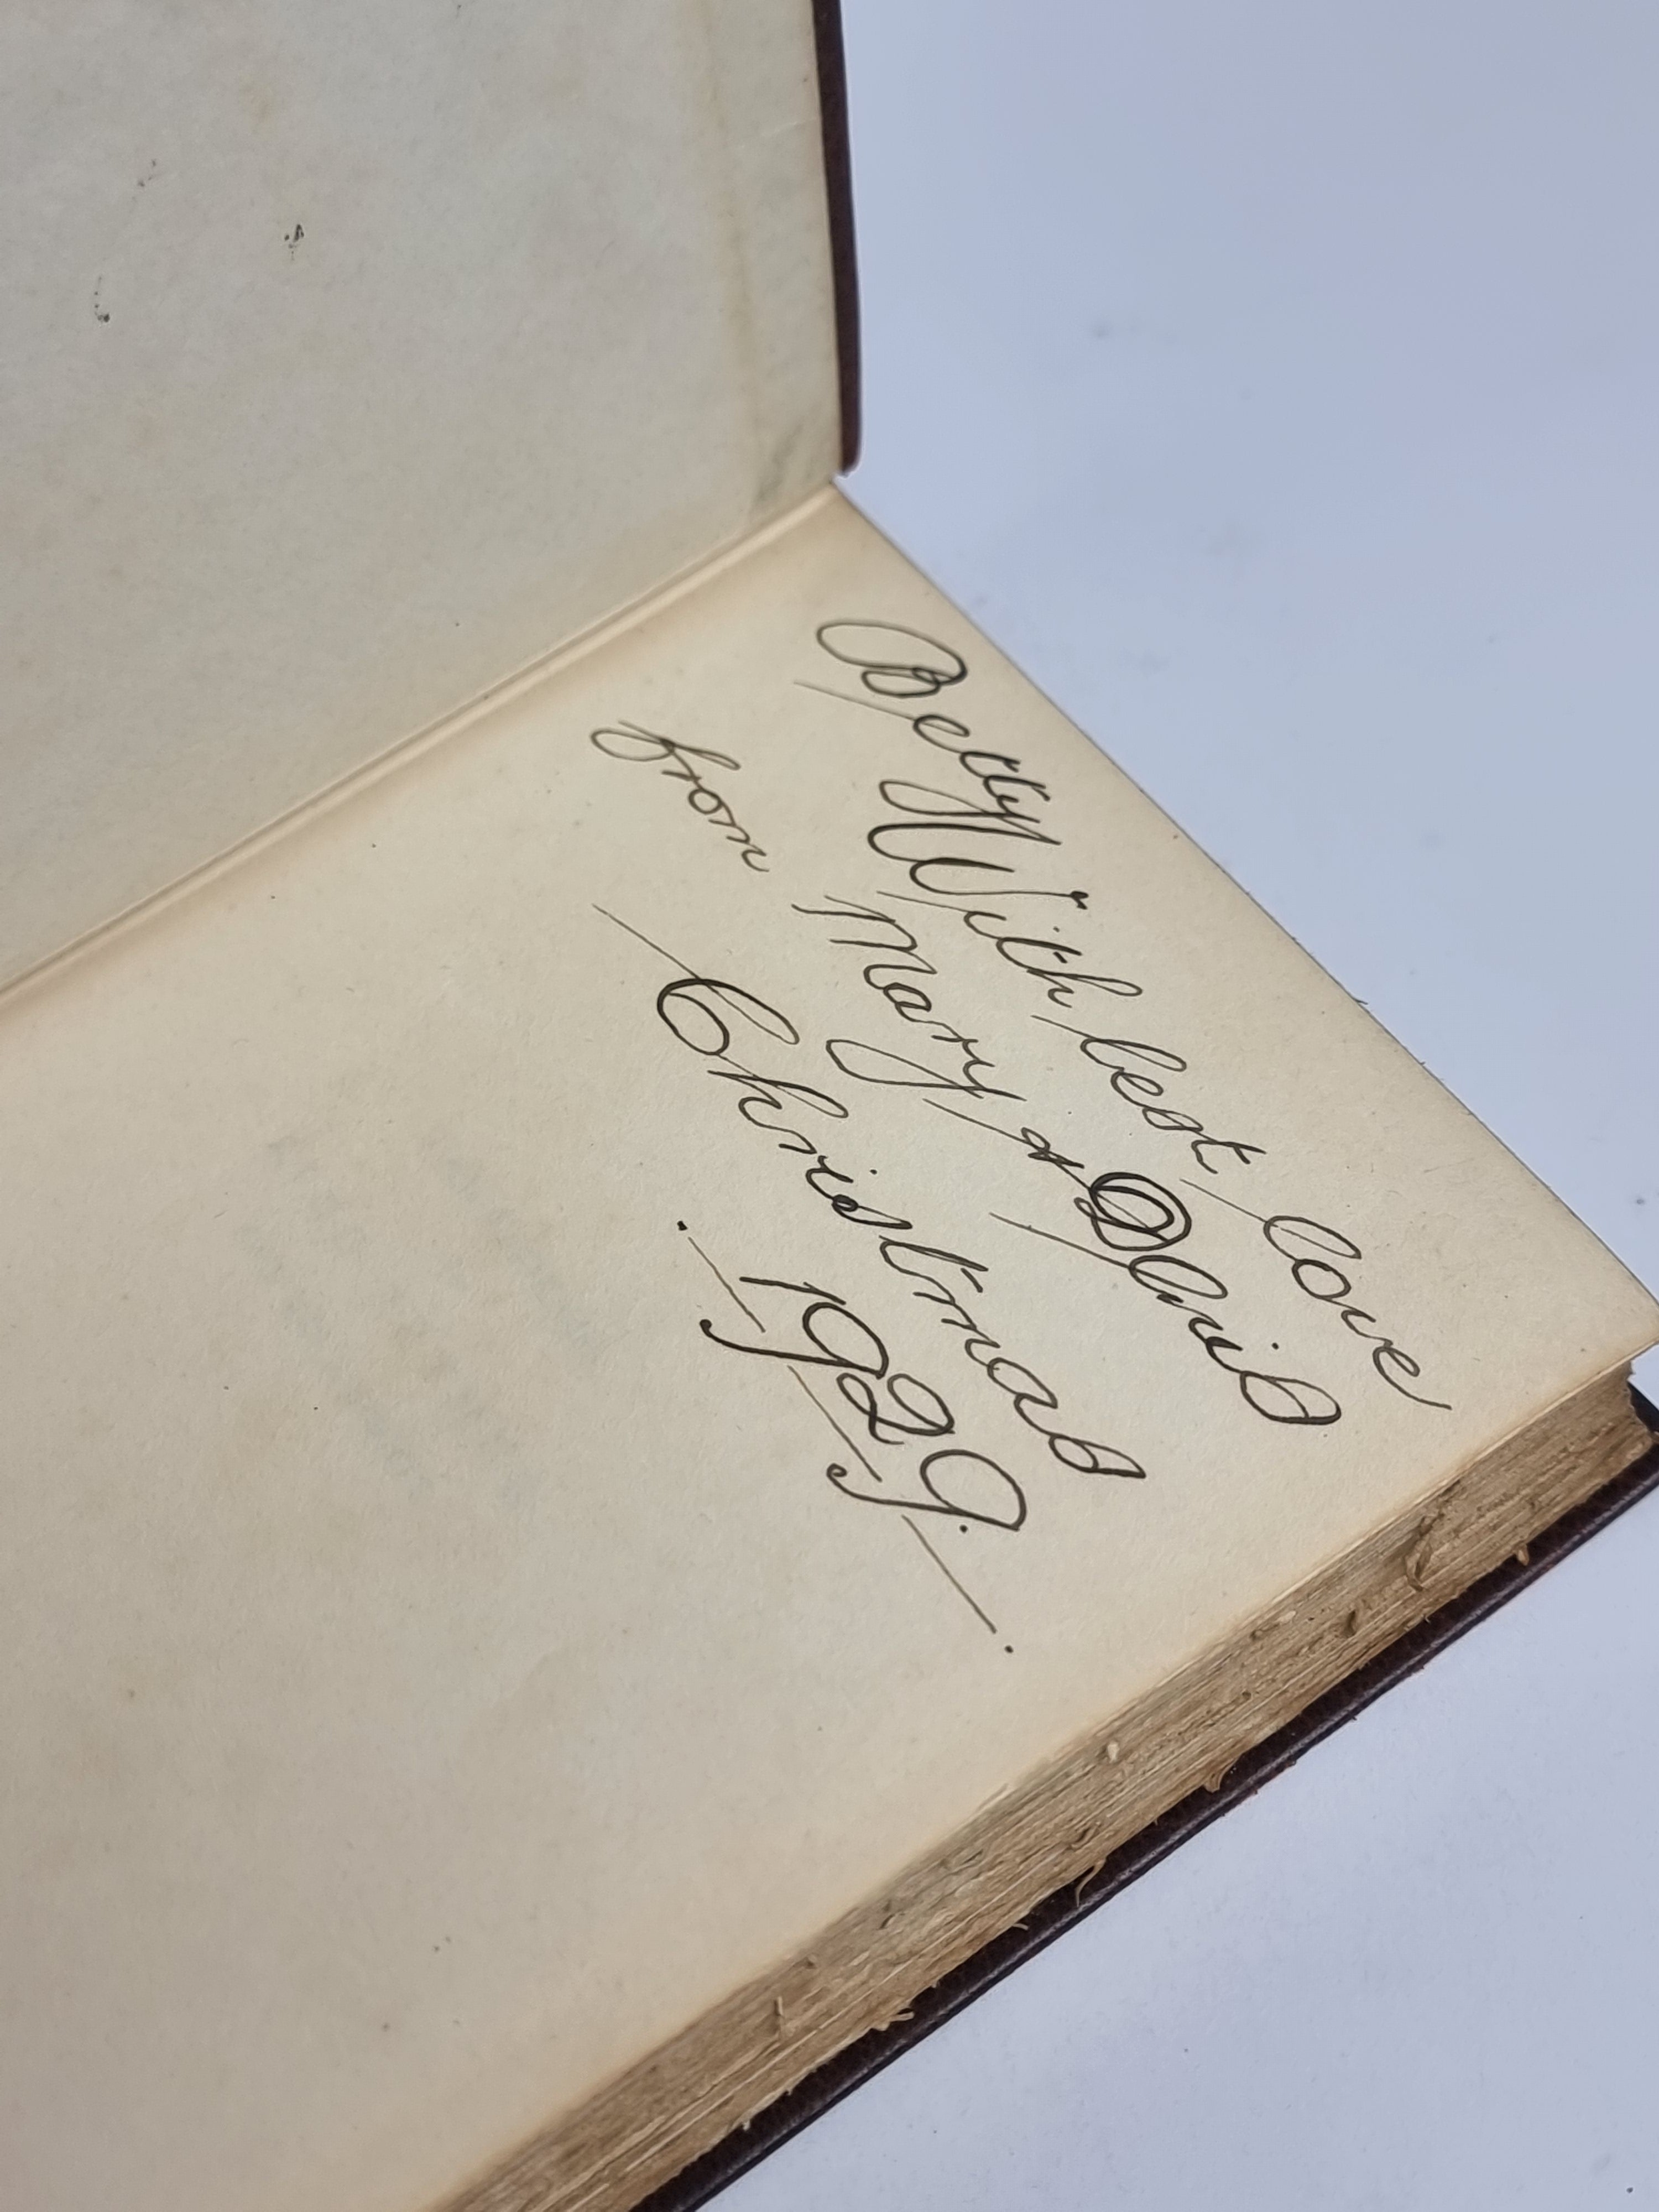 Betty With best love
from Mary & Denis
Christmas
1929.